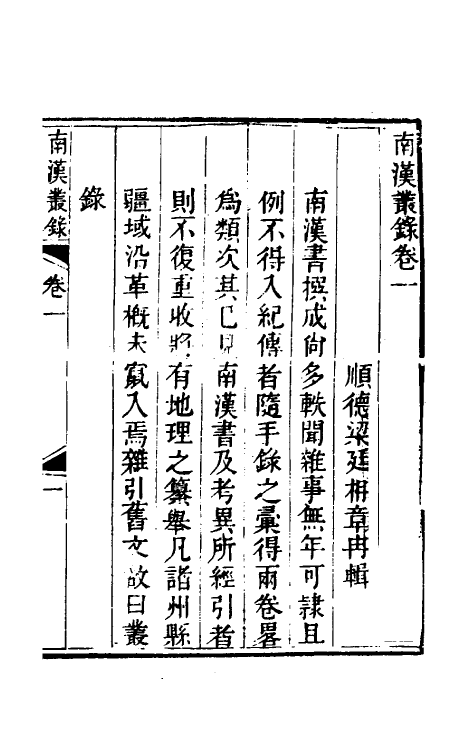 南漢叢錄卷一
順德梁廷枏章冉輯
南漢書撰成尙多軼聞雜事無年可隷且
例不得入紀傳者隨手錄之彙得兩卷畧
爲類次其已見南漢書及考異所經引者
則不復重收將有地理之纂舉凡諸州縣
疆域沿革槪未竄入焉雜引舊文故曰叢
錄
南漢叢錄
卷一
一